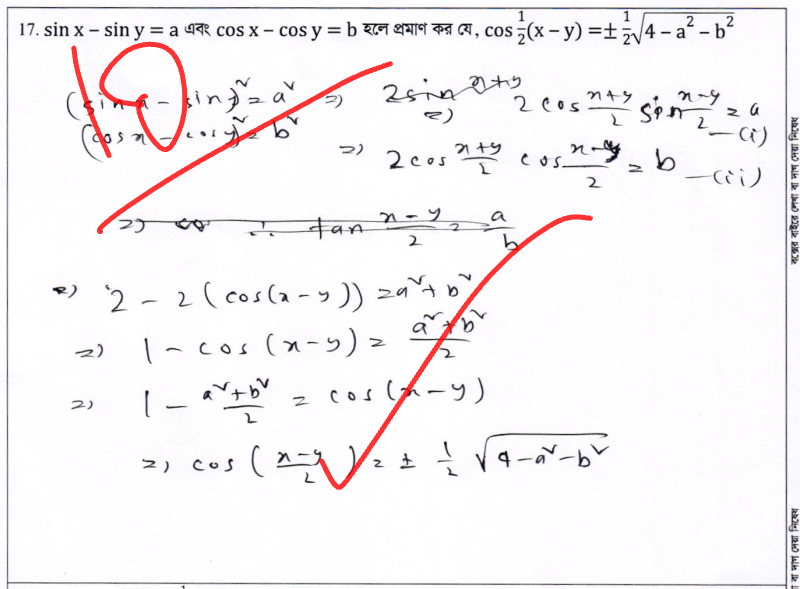 17. sin x – sin y = a এবং cos x – cos y = b হলে প্রমাণ কর যে, cos ½(x – y) = ± ½√(4 – a² – b²)
10
(sin x – sin y)² = a² ⇒ 2 sin x+y
⇒ 2 cos (x+y)/2 sin (x–y)/2 = a —(i)
(cos x – cos y)² = b² ⇒ 2 cos (x+y)/2 cos (x–y)/2 = b —(ii)
⇒ co ∴ tan (x–y)/2 = a/b
⇒ 2 – 2 (cos(x–y)) = a² + b²
⇒ 1 – cos (x–y) = (a²+b²)/2
⇒ 1 – (a²+b²)/2 = cos (x–y)
⇒ cos ((x–y)/2) = ± ½ √(4–a²–b²)
বক্সের বাইরে লেখা বা দাগ দেয়া নিষেধ
বা দাগ দেয়া নিষেধ